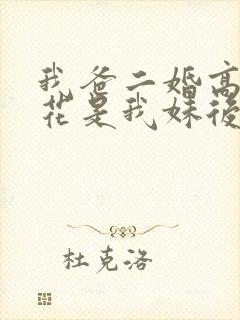 我爸二婚高
花是我妹後
杜克洛